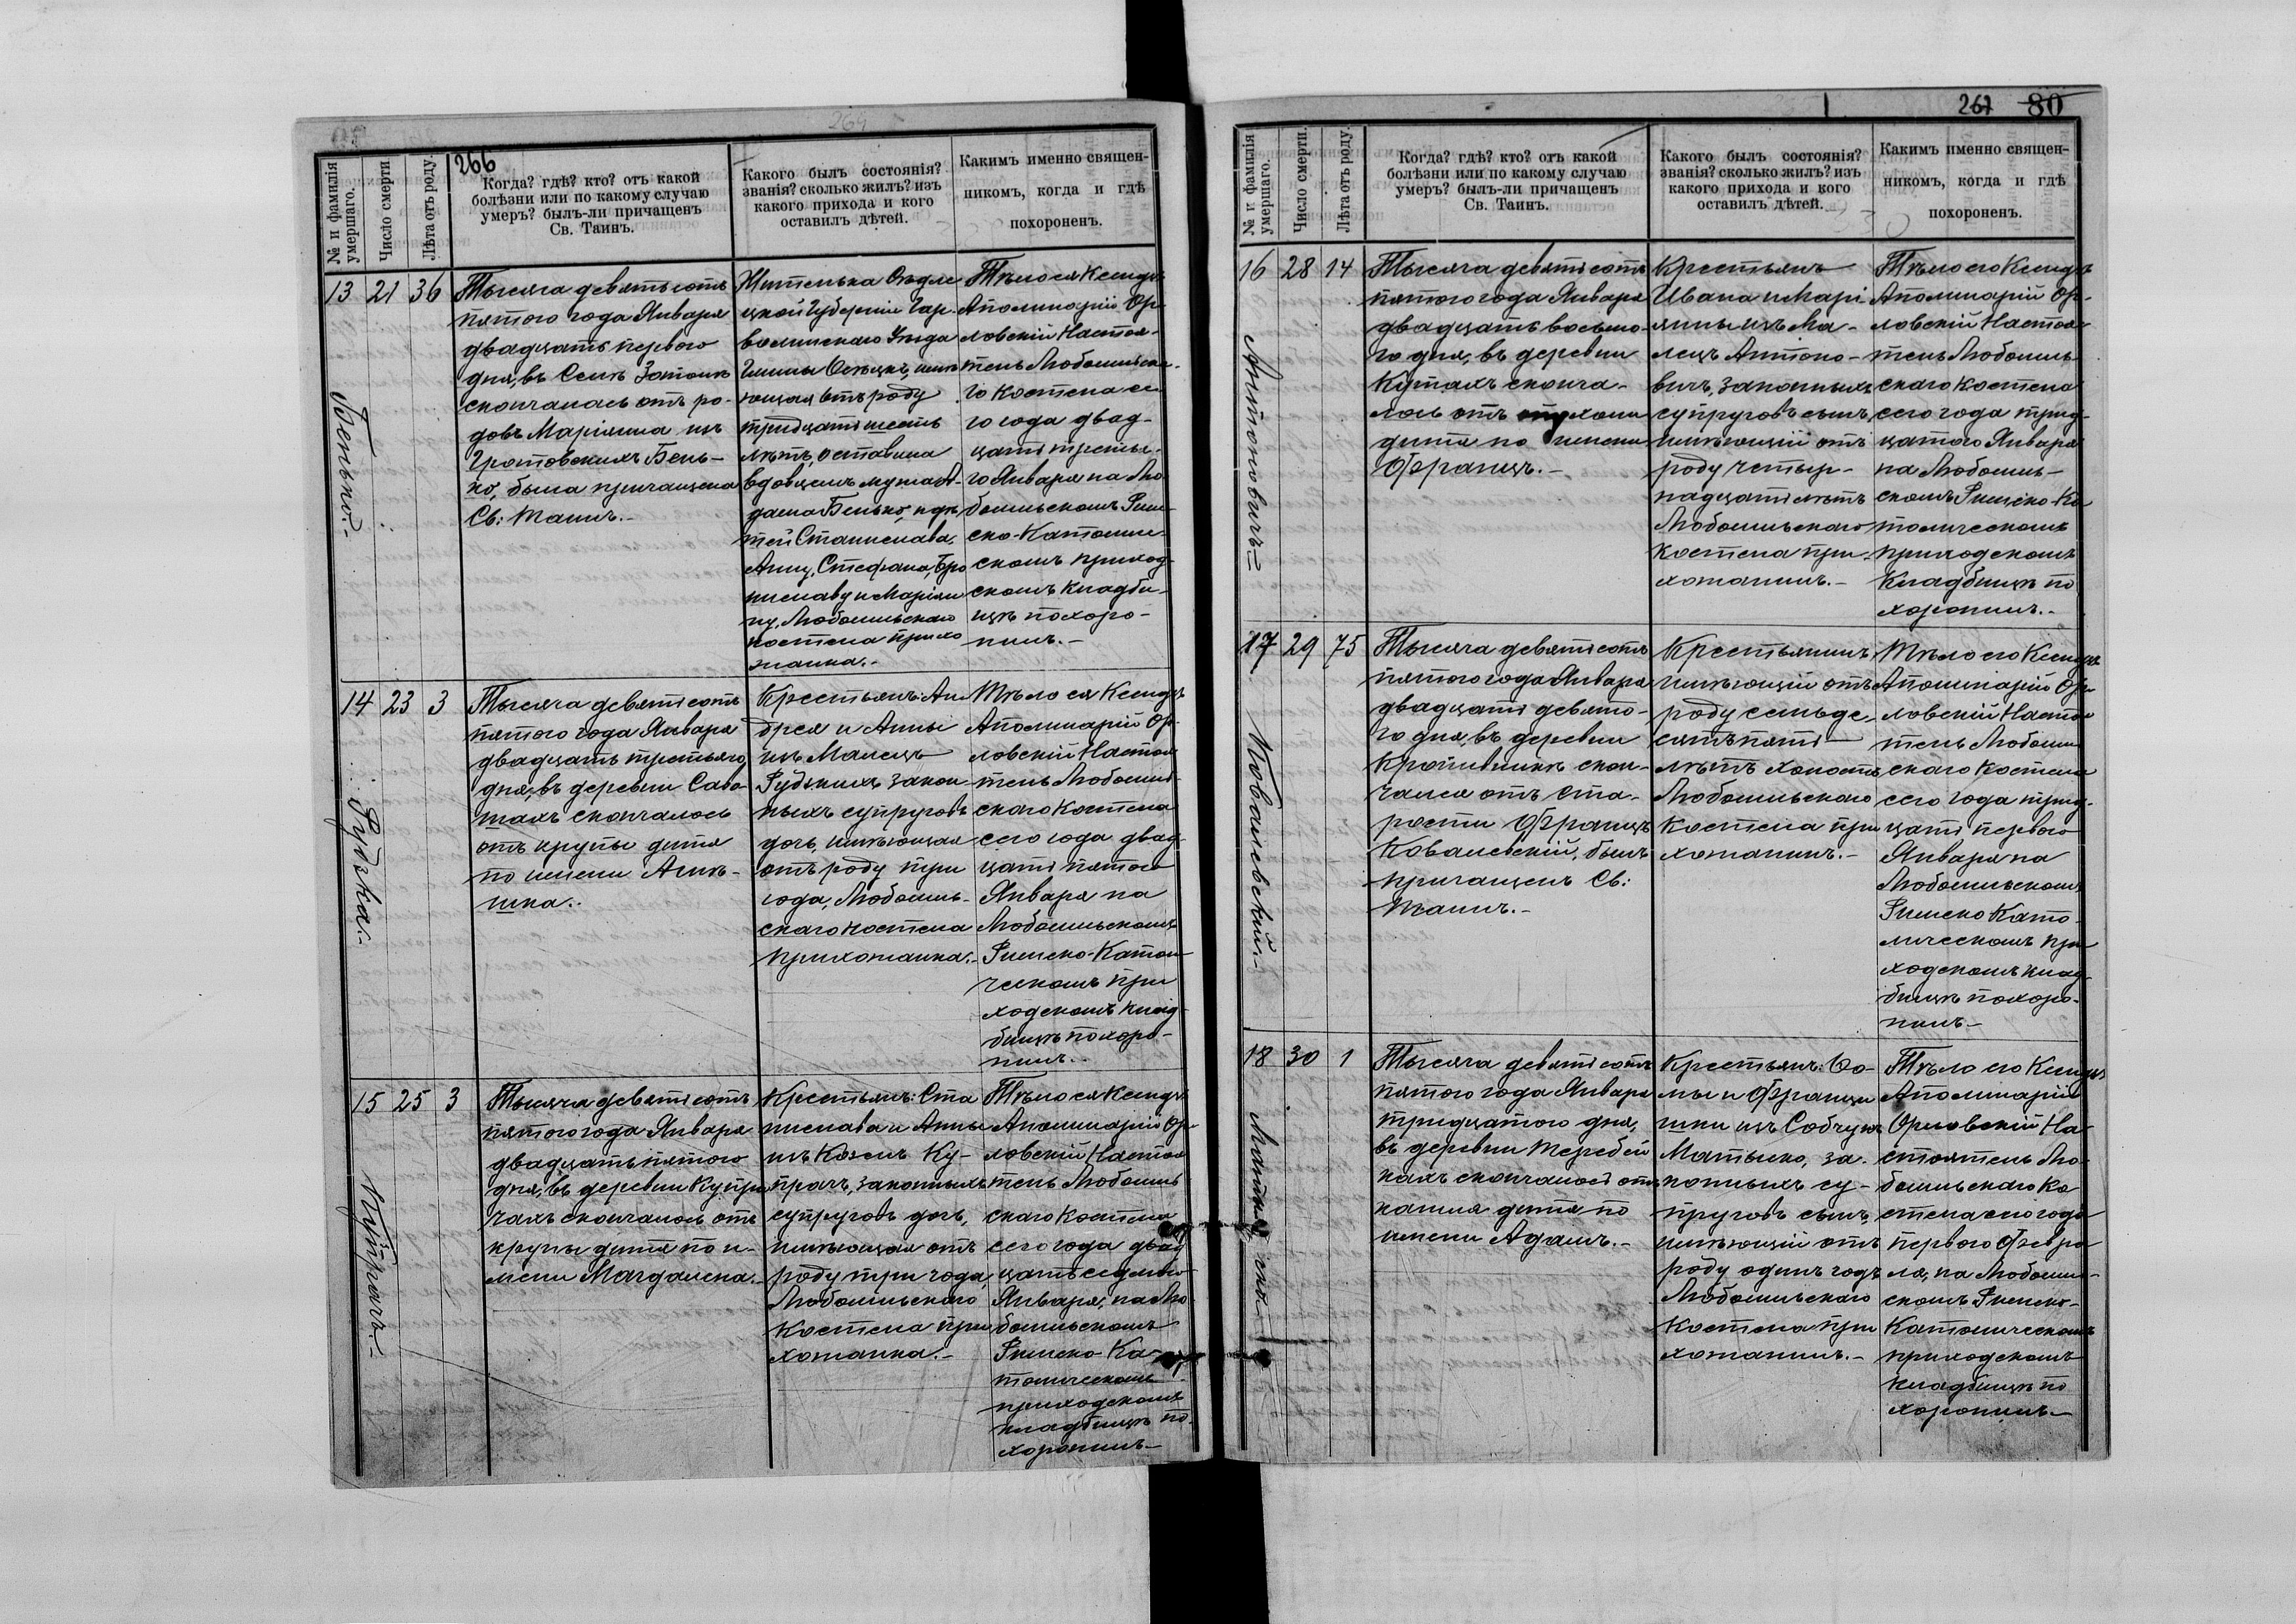 264
266
№ и фамилія умершаго.
Число смерти
Лѣта отъ роду.
Когда? гдѣ? кто? отъ какой
болѣзни или по какому случаю
умеръ? былъ-ли причащенъ
Св. Таинъ.
Какого былъ состоянія?
званія? сколько жилъ? изъ
какого прихода и кого
оставилъ дѣтей.
Какимъ именно священ-
никомъ, когда и гдѣ
похороненъ.
13
Бенько.-
21
36
Тысяча девятьсотъ
пятого года Января
двадцать перваго
дня, въ Селѣ
скончалась отъ ро-
довъ Маріянна изъ
Бень-
ко, была причащена
Св: Таинъ.-
Жителька Сѣдле
цкой Губерніи Гар-
волинскаго Уѣзда
Гмины имѣ
ющая отъ роду
тридцать шесть
лѣтъ, оставила
вдовцемъ мужа А-
дама Бенько, и дѣ
тей Станислава,
Анну, Стефана, Бро
ниславу и Маріян
ну, Любомльскаго
костела прихо
жанка.-
Тѣло ея Ксендзъ
Аполинарій Ор-
ловскій Настоя-
тель Любомльска-
го Костела се
го года двад-
цать третья-
го Января на Лю
бомльскомъ Рим-
ско-Католиче-
скомъ приход-
скомъ кладби-
щѣ похоро-
нилъ.-
14
Рудзка.-
23
3
Тысяча девятьсотъ
пятого года Января
двадцать третьяго
дня, въ деревни Сава
тахъ скончалось
отъ крупы дитя
по имени Агнѣ-
шка.-
Крестьянъ: Ан
дрея и Анны
изъ Малецъ
Рудзкихъ закон
ныхъ супруговъ
дочь, имѣющая
отъ роду три
года, Любомль-
скаго костела
прихожанка.-
Тѣло ея Ксендзъ
Аполинарій Ор-
ловскій Настоя
тель Любомль-
скаго Костела
сего года двад-
цать пятого
Января на
Любомльскомъ
Римско-Катол-
ческомъ при
ходскомъ клад-
бищѣ похоро-
нилъ.-
15
Купрачъ-
25
3
Тысяча девятьсотъ
пятого года Января
двадцать пятого
дня, въ деревни Купра
чахъ скончалось отъ
крупы дитя по и-
мени Магдалена.-
Крестьянъ: Ста
нислава и Анны
изъ Козелъ Ку-
прачъ, законныхъ
супруговъ дочь,
имѣющая отъ
роду три года,
Любомльскаго
Костела при
хожанка.-
Тѣло ея Ксендзъ
Аполинарій Ор-
ловскій Настоя
тель Любомль
скаго Костела
сего года двад
цать седьмого
Января, на Лю-
бомльскомъ
Римско-Ка-
толическомъ
приходскомъ
кладбищѣ по-
хоронилъ-
267
80
№ и фамилія умершаго.
Число смерти.
Лѣта отъ роду.
Когда? гдѣ? кто? отъ какой
болѣзни или по какому случаю
умеръ? былъ-ли причащенъ
Св. Таинъ.
Какого былъ состоянія?
званія? сколько жилъ? изъ
какого прихода и кого
оставилъ дѣтей.
Какимъ именно священ-
никомъ, когда и гдѣ
похороненъ.
16
Антоновичъ=
28
14
Тысяча девятьсотъ
пятого года Января
двадцать восьмо-
го дня, въ деревни
Кутахъ сконча-
лось отъ
дитя по имени
Францъ.-
Крестьянъ
Ивана и Марі
янны изъ Ма-
лецъ Антоно-
вичъ, законныхъ
супруговъ сынъ,
имѣющій отъ
роду четыр-
надцать лѣтъ
Любомльскаго
костела при-
хожанинъ.-
Тѣло его Ксендзъ
Аполинарій Ор-
ловскій Настоя-
тель Любомль
скаго Костела
сего года трид-
цатого Января
на Любомль-
скомъ Римско-Ка
толическомъ
приходскомъ
кладбищѣ по
хоронилъ.-
17
Ковалевскій.-
29
75
Тысяча девятьсотъ
пятого года Января
двадцать девято-
го дня, въ деревни
Кропивникъ скон-
чался отъ ста-
рости Францъ
Ковалевскій, былъ
причащенъ Св:
Таинъ.-
Крестьянинъ,
имѣющій отъ
роду семьде-
сятъ пять
лѣтъ холостъ
Любомльскаго
Костела при
хожанинъ.-
Тѣло его Ксендзъ
Аполинарій Ор
ловскій Настоя
тель Любомль
скаго Костела
сего года трид-
цать перваго
Января на
Любомльскомъ
Римско Като-
лическомъ при
ходскомъ клад-
бищѣ похоро-
нилъ-
18
30
1
Тысяча девятьсотъ
пятого года Января
тридцатого дня,
въ деревни Теребей
кахъ скончалось отъ
кашля дитя по
имени Адамъ.-
Крестьянъ: Ѳо-
мы и Францы
шки изъ
Матыско, за-
конныхъ су-
пруговъ сынъ,
имѣющій отъ
роду одинъ годъ
Любомльскаго
Костела при
хожанинъ.-
Тѣло его Ксендзъ
Аполинарій
Орловскій На-
стоятель Лю-
бомльскаго Ко
стела сего года
перваго Февра
ля, на Любомль-
скомъ Римско-
Католическомъ
приходскомъ
кладбищѣ по
хоронилъ-